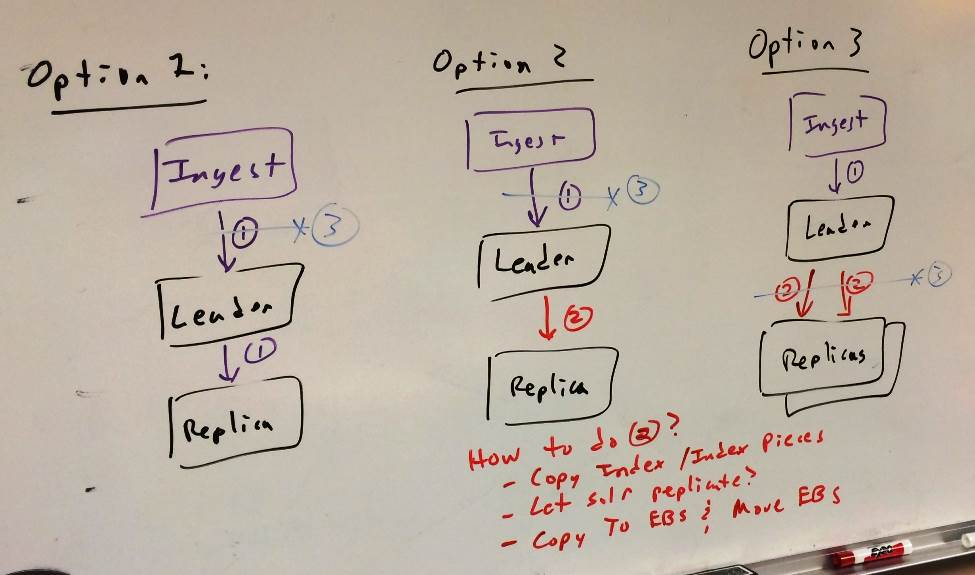 Option 1:
Ingest
① × ③
Leader
①
Replica
Option 2
Ingest
① × ③
Leader
②
Replica
How to do ②?
- Copy Index / Index Pieces
- Let solr replicate?
- Copy To EBS & Move EBS
Option 3
Ingest
①
Leader
② ② × ③
Replicas
EXPO